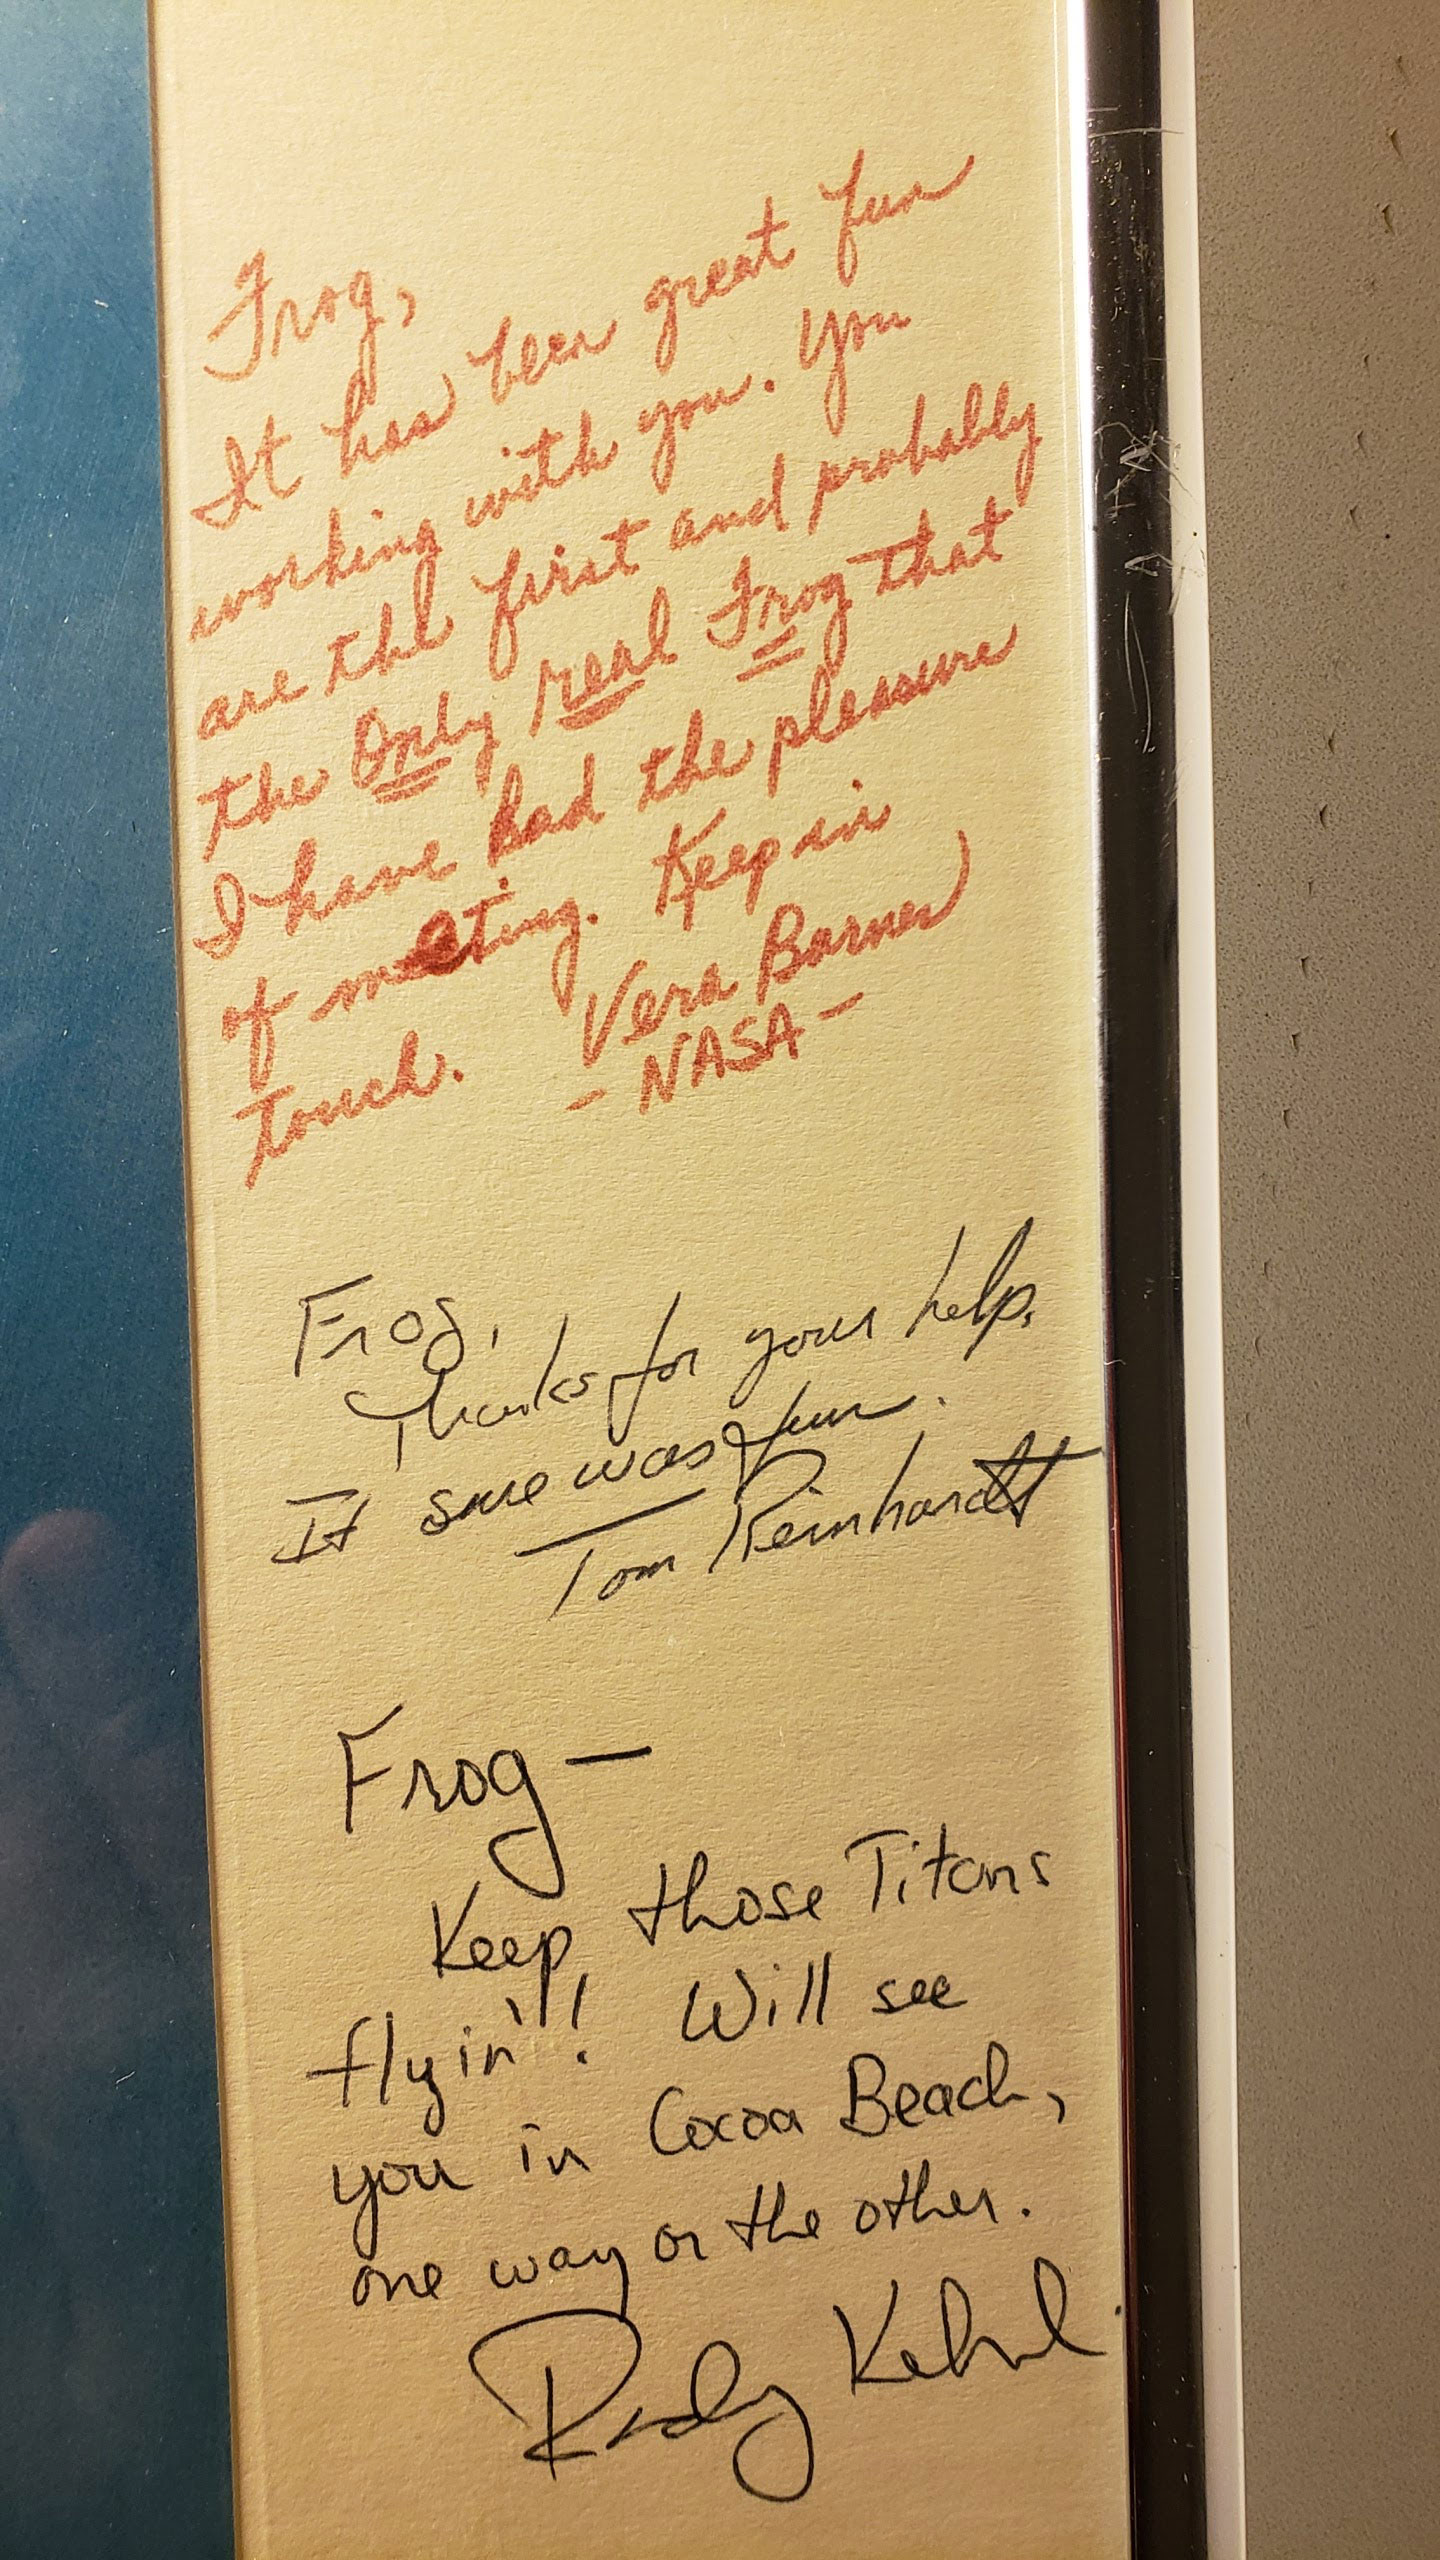 Frog,
It has been great fun
working with you. You
are the first and probably
the Only real Frog that
I have had the pleasure
of meeting. Keep in
touch. Vera Barnes
- NASA -
Frog,
Thanks for your help.
It sure was fun.
Tom Reinhardt
Frog —
Keep those Titans
flyin'! Will see
you in Cocoa Beach,
one way or the other.